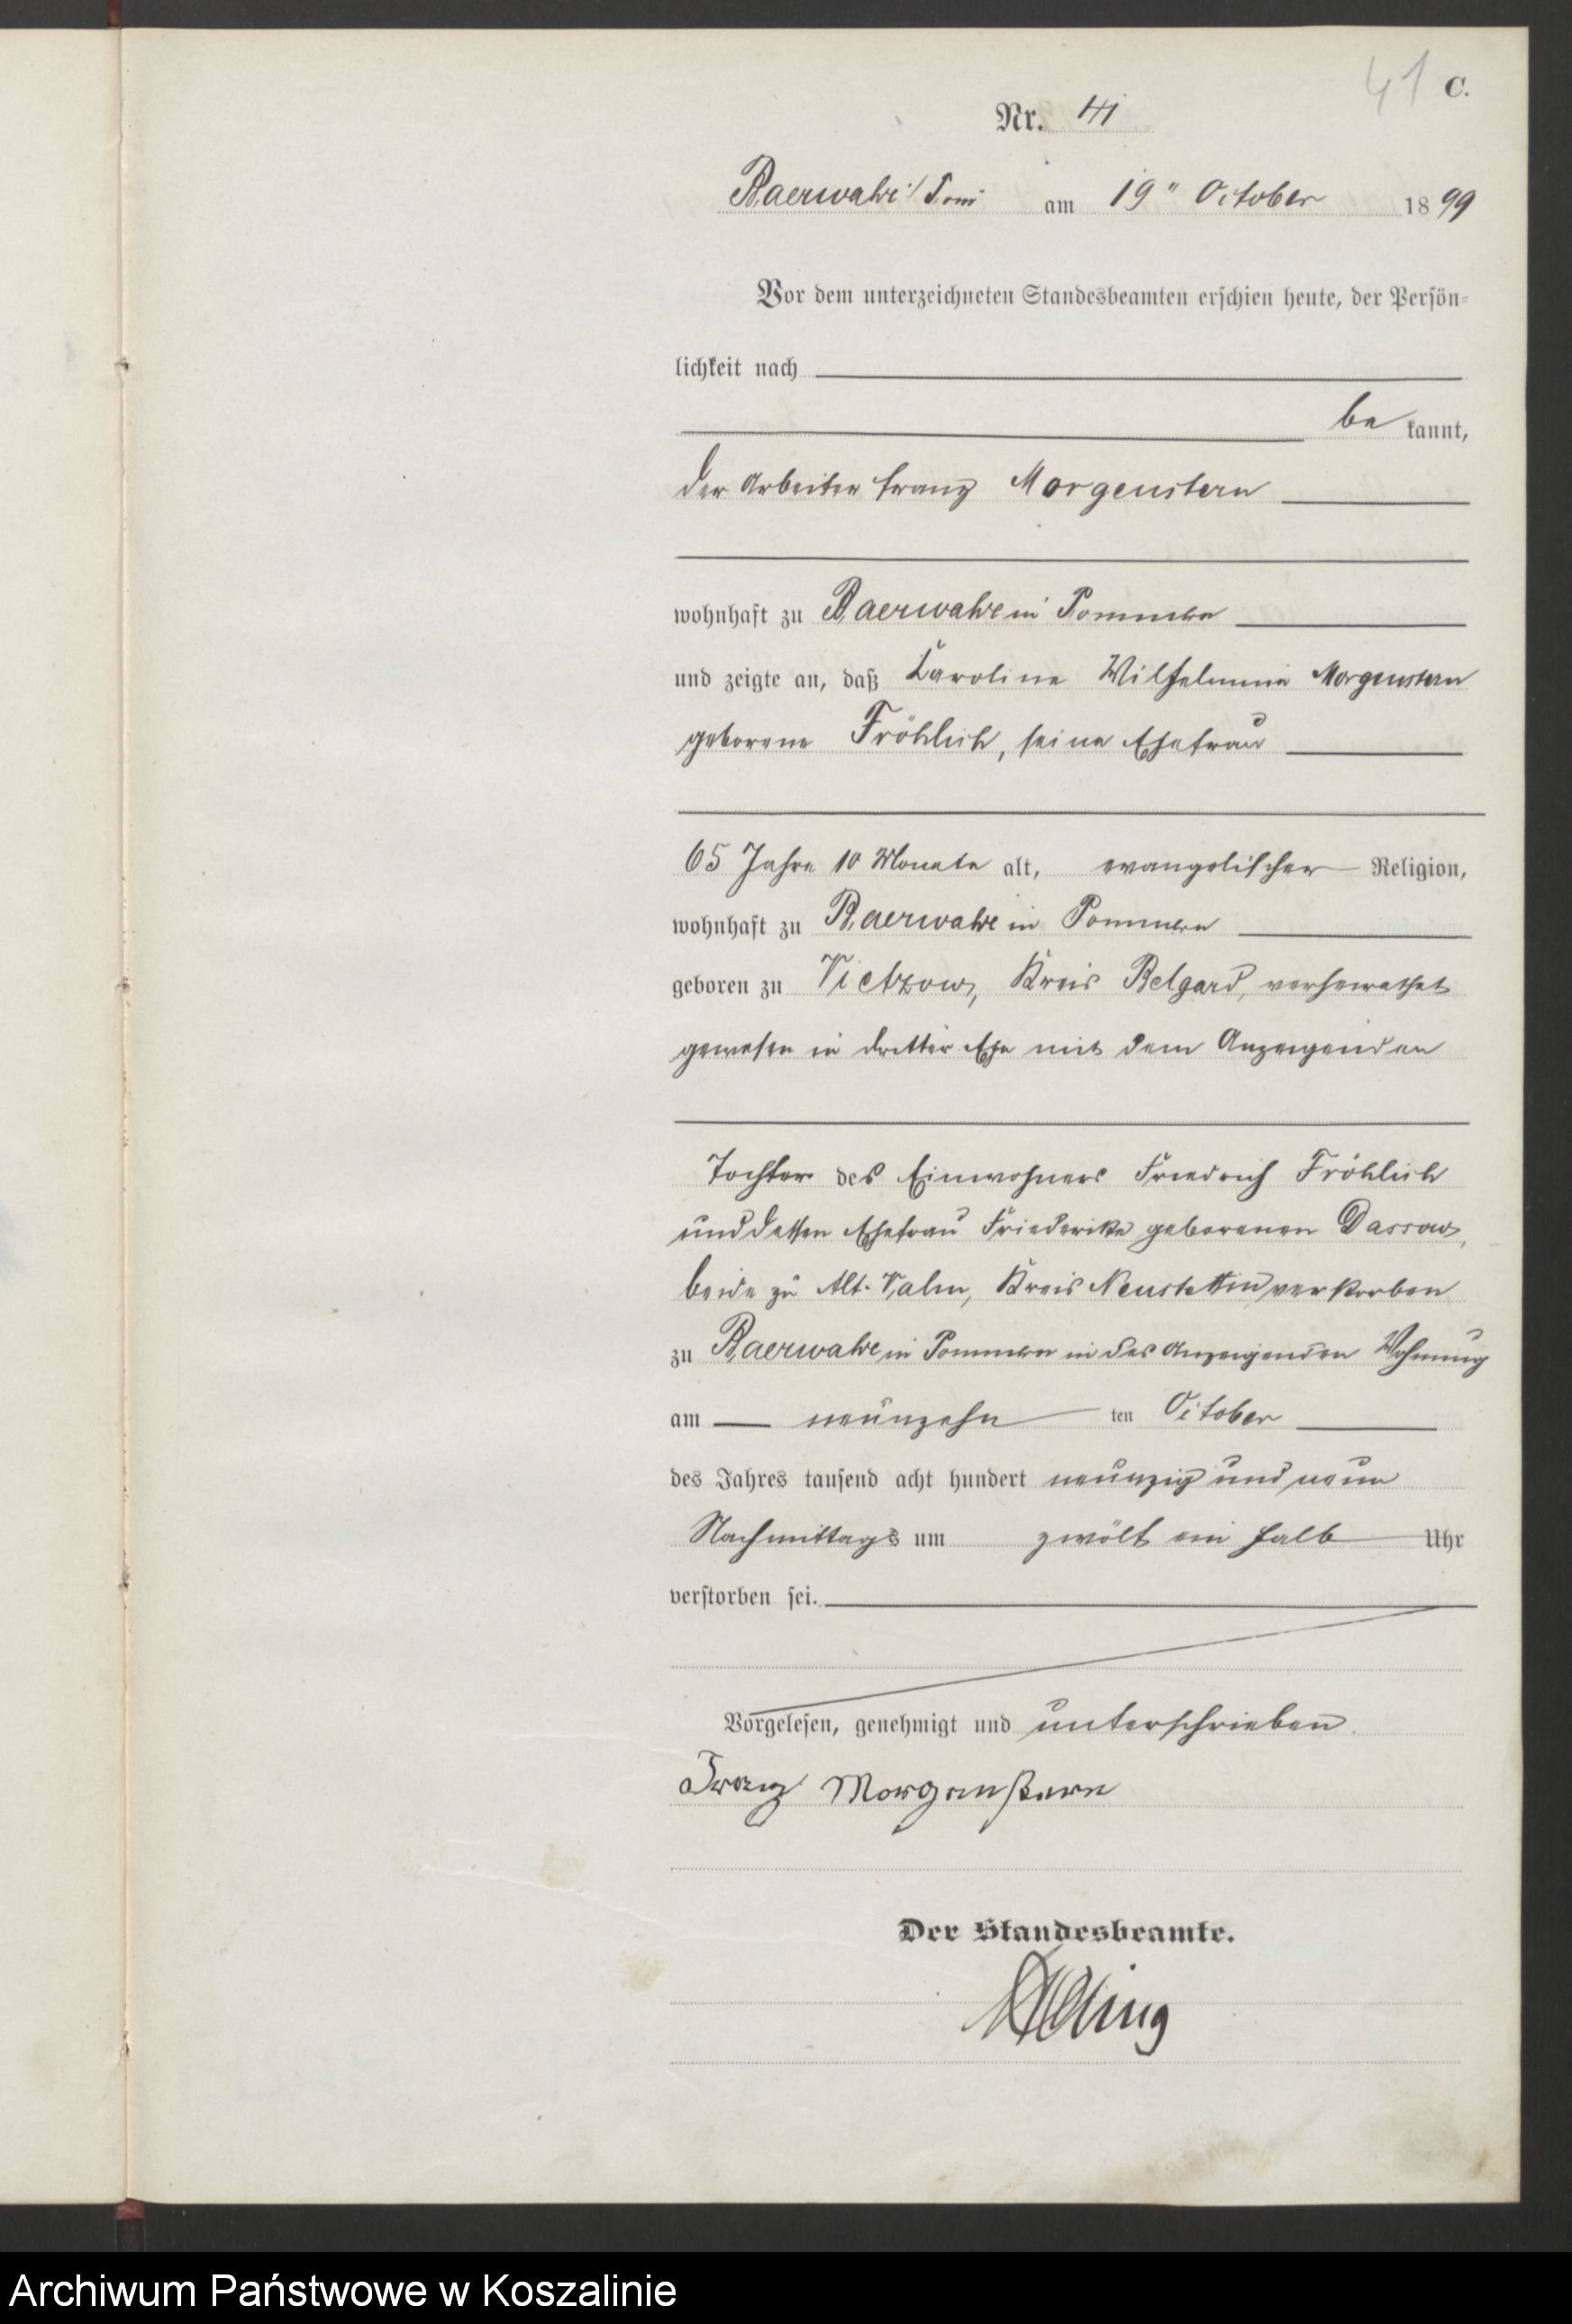 41 C.
Nr. 41
Baerwalde i/Pom am 19" October 1899
Vor dem unterzeichneten Standesbeamten erschien heute, der Persön-
lichkeit nach
be kannt,
der Arbeiter Franz Morgenstern
wohnhaft zu Baerwalde in Pommern
und zeigte an, daß Karoline Wilhelmine Morgenstern
geborene Fröhlich, seine Ehefrau
65 Jahre 10 Monate alt, evangelischer Religion,
wohnhaft zu Baerwalde in Pommern
geboren zu Vietzow, Kreis Belgard, verheirathet
gewesen in dritter Ehe mit dem Anzeigenden
Tochter des Einwohners Friedrich Fröhlich
und dessen Ehefrau Friederike geborenen Dassow,
beide zu Alt-Valm, Kreis Neustettin verstorben
zu Baerwalde in Pommern in des Anzeigenden Wohnung
am neunzehn ten October
des Jahres tausend acht hundert neunzig und neun
Nachmittags um zwölf ein halb Uhr
verstorben sei.
Vorgelesen, genehmigt und unterschrieben.
Franz Morgenstern
Der Standesbeamte.
Archiwum Państwowe w Koszalinie